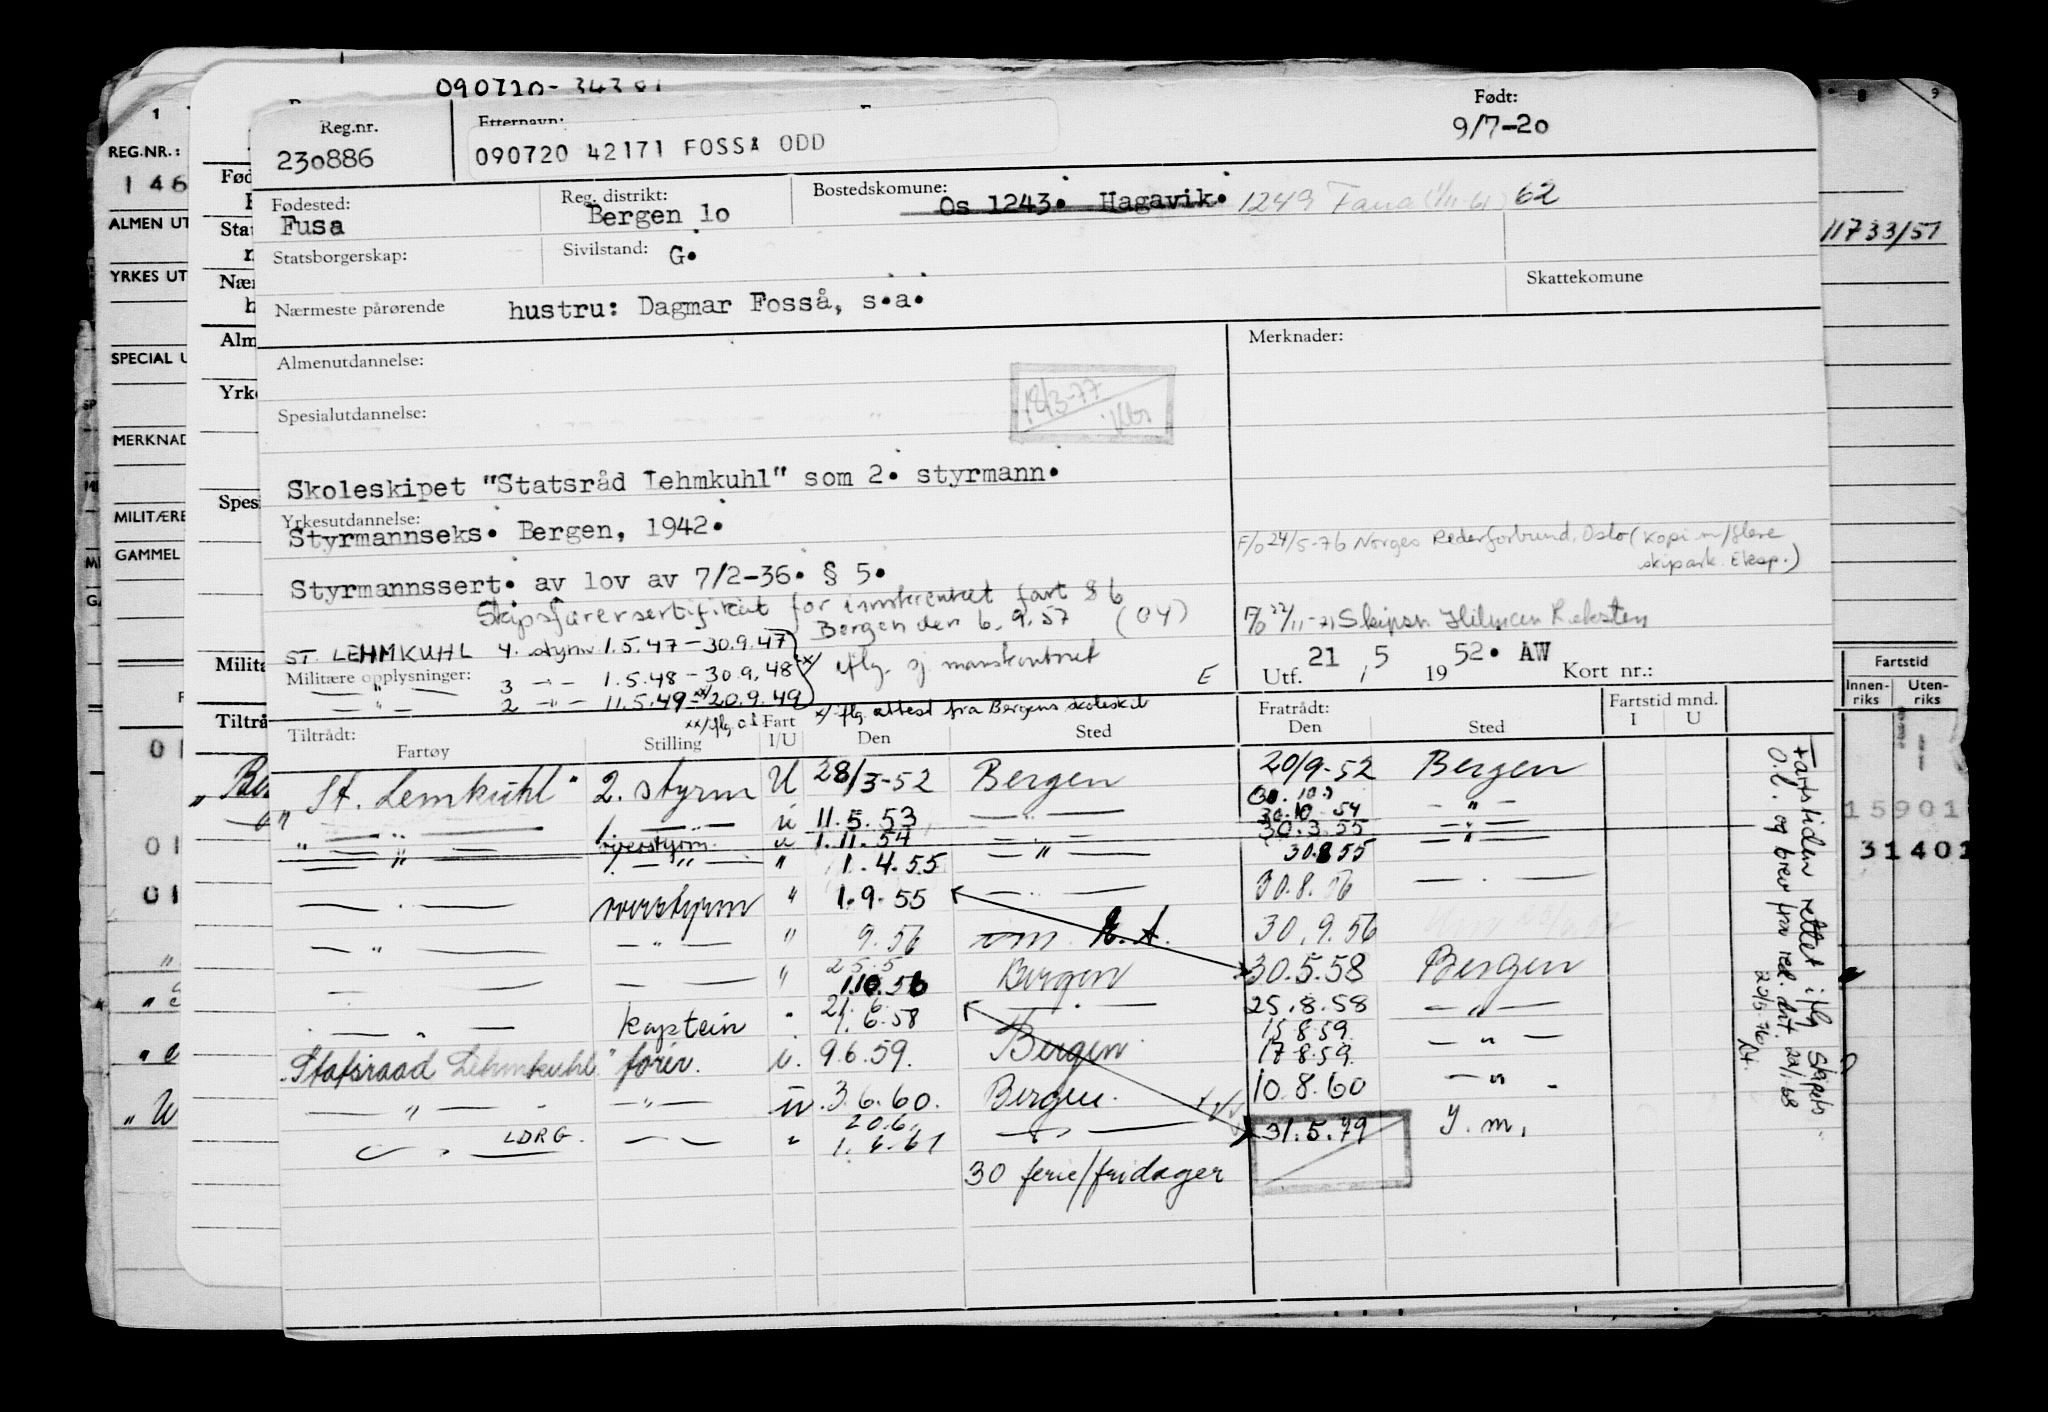 090720-34301
Reg.nr.
Etternavn:
Født:
230886
090720 42171 FOSSÅ ODD
9/7-20
Fødested:
Reg. distrikt:
Bostedskomune:
Fusa
Bergen lo
Os 1243. Hagavik. 1249 Fana (1/11 61) 62
Statsborgerskap:
Sivilstand: G.
Skattekomune
Nærmeste pårørende
hustru: Dagmar Fosså, s.a.
Almenutdannelse:
Merknader:
18/3-77
Spesialutdannelse:
Skoleskipet "Statsråd Lehmkuhl" som 2. styrmann.
Yrkesutdannelse:
Styrmannseks. Bergen, 1942.
F/o 24/5-76 Norges Rederforbund, Oslo (Kopi m/flere
skipark. Eksp.)
Styrmannssert. av lov av 7/2-36. § 5.
Skipsførersertifikat for innskrenket fart § 6
Bergen den 6.9.57 (04)
F/o 22/11-71 Skipsr. Hilmar Reksten
ST. LEHMKUHL 4. styrm 1.5.47-30.9.47
Militære opplysninger:
— " — 3 — " — 1.5.48-30.9.48
x/ iflg. sj mannskontoret
E
— " — 2 — " — 11.5.49-xx/20.9.49
Utf. 21 / 5 19 52. AW Kort nr.:
xx/iflg. o.l
x/ iflg. attest fra Bergens skoleskib
Tiltrådt:
Fartøy
Stilling
Fart
I/U
Den
Sted
Fratrådt:
Den
Sted
Fartstid mnd.
I U
"St. Lemkuhl" 2. styrm U 28/3-52 Bergen 20/9-52 Bergen
30.10.
— " — 1. — " — u 11.5.53 — " — 30.10 54 — " —
— " — overstyrm. u 1.11.54 — " — 30.3.55 — " —
— " — 1. — " — " 1.4.55 — " — 30.8 55 — " —
— " — overstyrm " 1.9.55 — " — 30.8.56 — " —
— " — — " — " 9.56 om. K.A. 30.9.56
25.5
— " — — " — " 1.10.56 Bergen 30.5.58 Bergen
21.6
— " — kaptein " 1.6.58 — " — 25.8.58 — " —
15.8.59.
"Statsraad Lehmkuhl" fører. u. 9.6.59. Bergen. 17.8.59. — " —
— " — — " — u. 3.6.60. Bergen. 10.8.60 — " —
20.6.
— " — LDRG. — " — " 1.6.61 — " — 31.5.79 Y.m.
30 ferie/fridager
Fartstiden rettet iflg Skipets
o.l. og brev fra red. dat. 22/1 68
REG.NR.:
146
ALMEN UT
YRKES UT
SPECIAL U
MERKNAD
MILITÆRE
GAMMEL
Fød
Stat
Nær
Alm
Yrke
Spesi
Milita
Tiltrå
01
01
01
1
9
11733/51
Fartstid
Innen-
riks
Uten-
riks
15901
31401